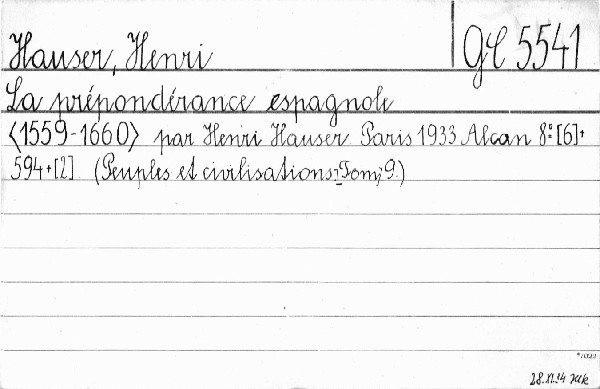 Hauser, Henri
GC 5541
La prépondérance espagnole
<1559-1660> par Henri Hauser Paris 1933 Alcan 8° [6]+
594+[2] (Peuples et civilisations: Tom; 9.)